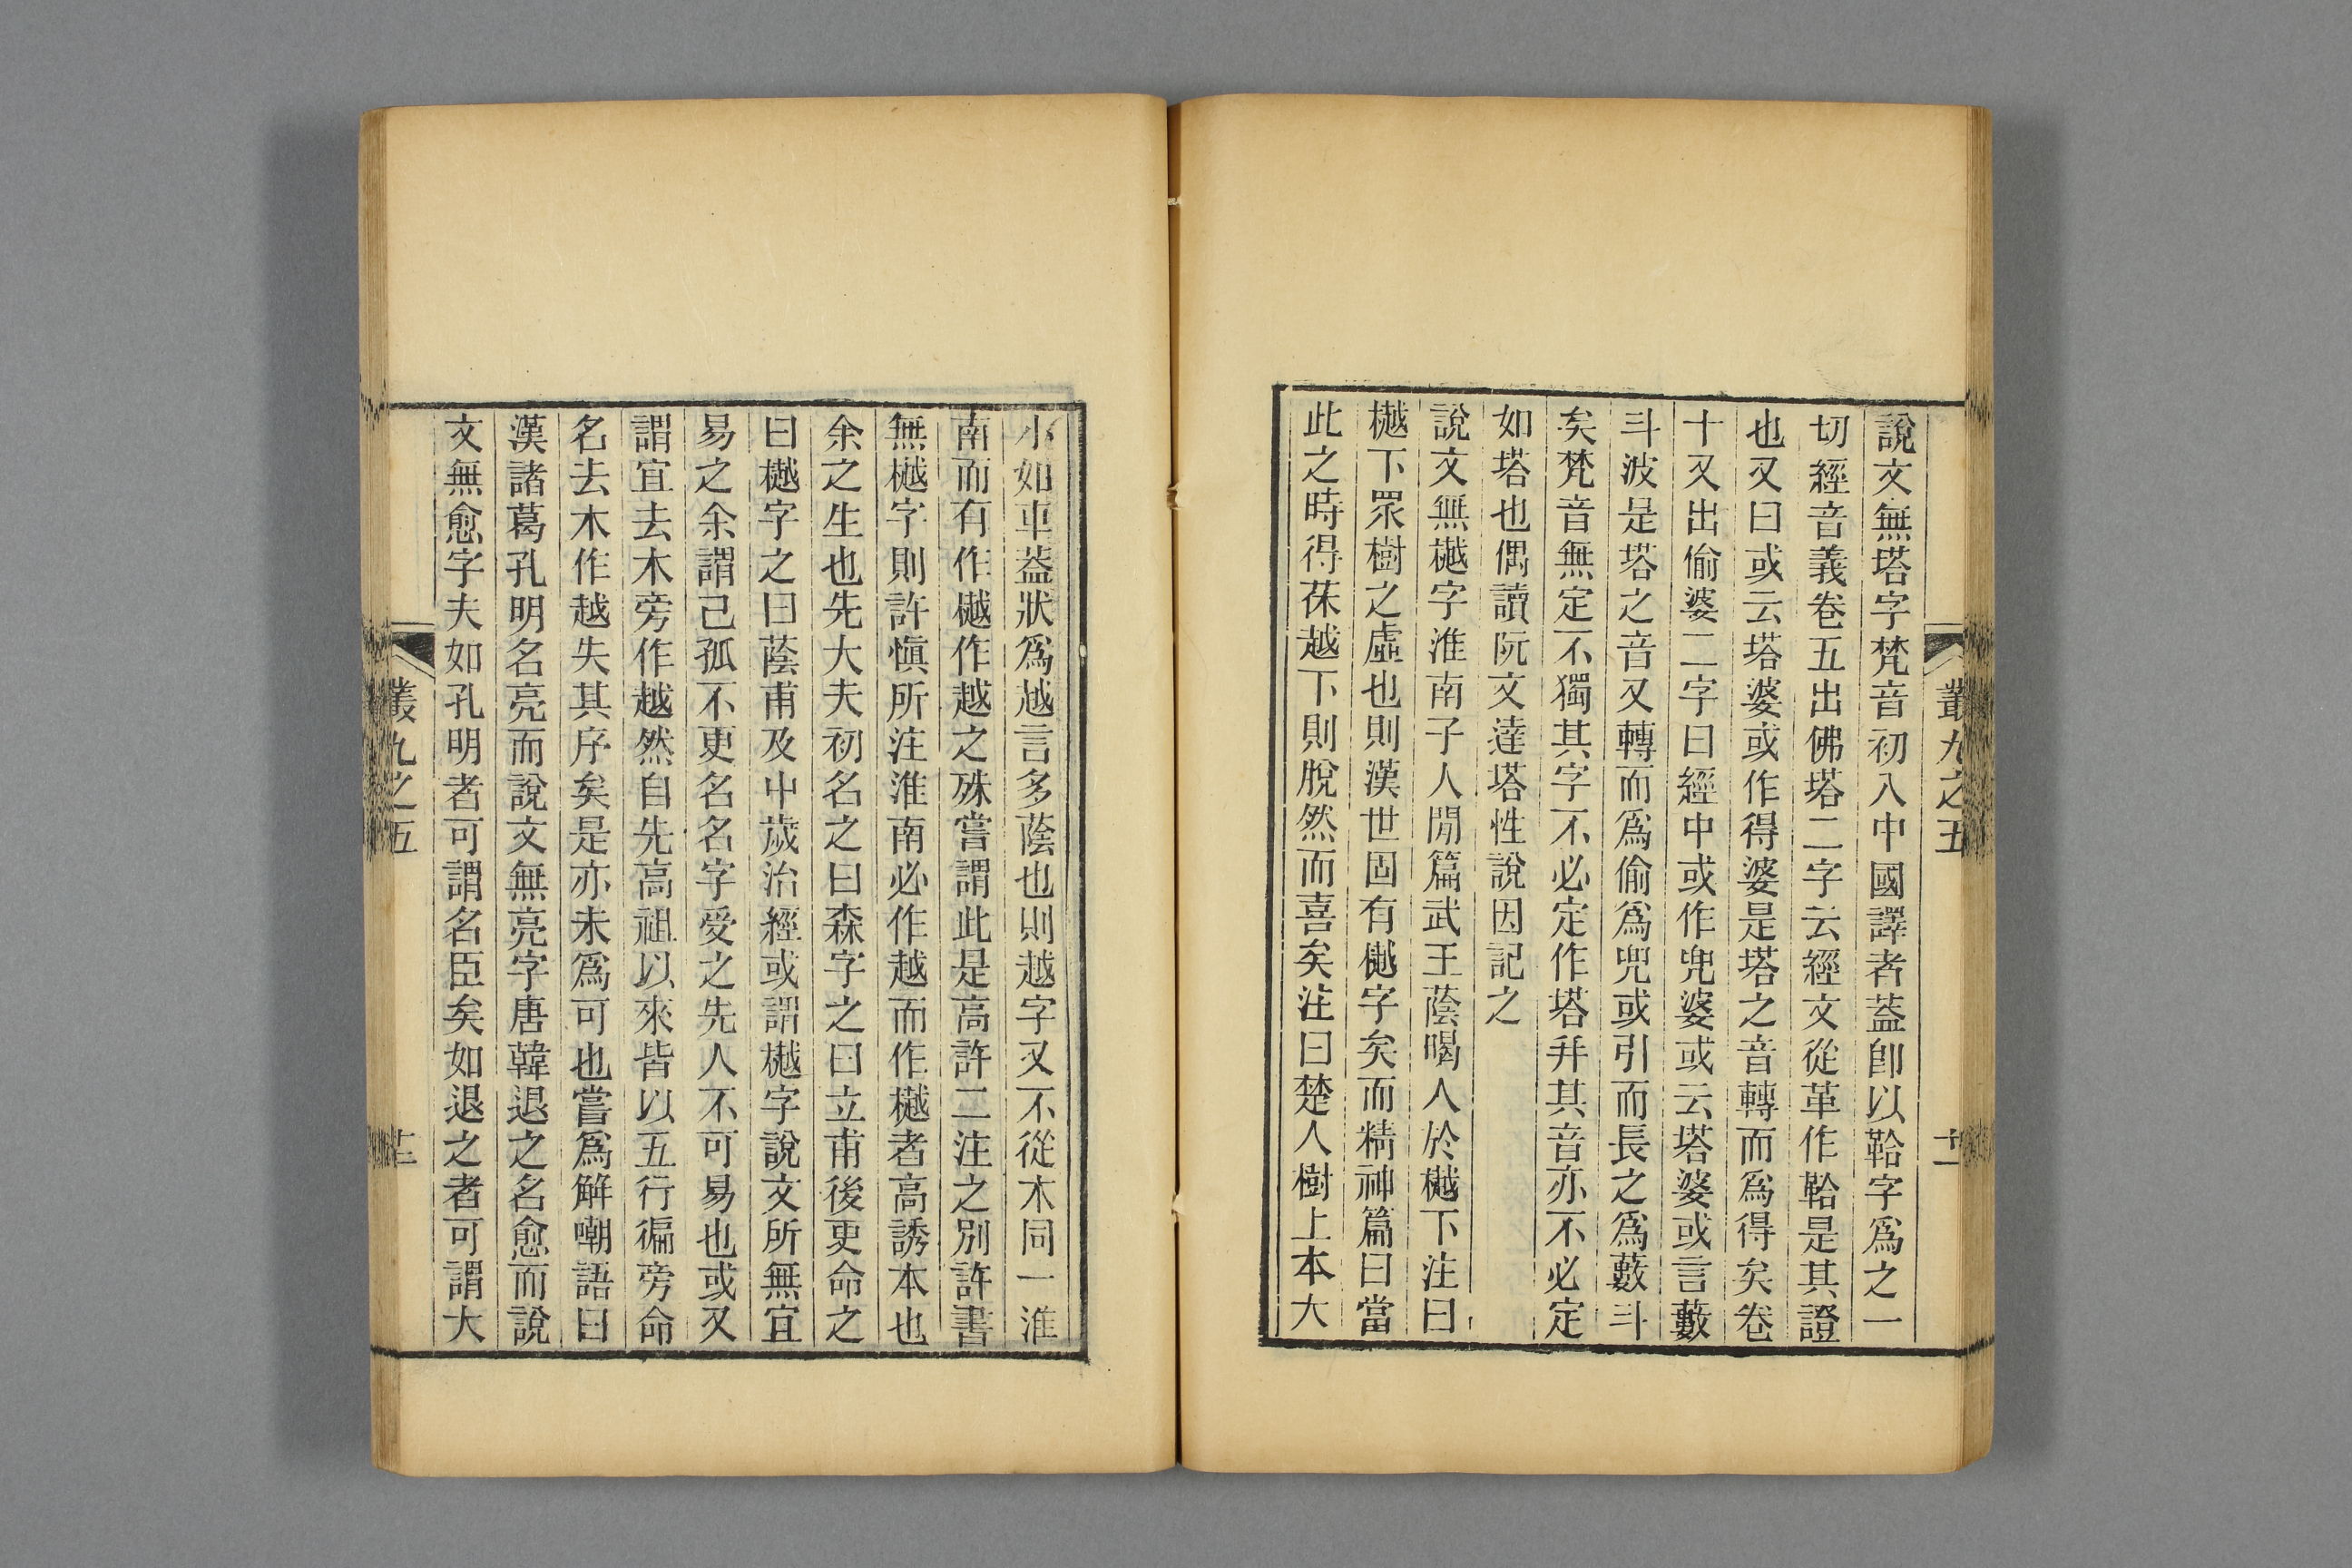 叢九之五
十二
說文無塔字梵音初入中國譯者葢卽以鞈字爲之一
切經音義卷五出佛塔二字云經文從革作鞈是其證
也又曰或云塔婆或作得婆是塔之音轉而爲得矣卷
十又出偷婆二字曰經中或作兜婆或云塔婆或言藪
斗波是塔之音又轉而爲偷爲兜或引而長之爲藪斗
矣梵音無定不獨其字不必定作塔幷其音亦不必定
如塔也偶讀阮文達塔性說因記之
說文無樾字淮南子人閒篇武王蔭暍人於樾下注曰
樾下眾樹之虛也則漢世固有樾字矣而精神篇曰當
此之時得茠越下則脫然而喜矣注曰楚人樹上本大
小如車葢狀爲越言多蔭也則越字又不從木同一淮
南而有作樾作越之殊嘗謂此是高許二注之別許書
無樾字則許愼所注淮南必作越而作樾者高誘本也
余之生也先大夫初名之曰森字之曰立甫後更命之
曰樾字之曰蔭甫及中歲治經或謂樾字說文所無宜
易之余謂己孤不更名名字受之先人不可易也或又
謂宜去木旁作越然自先高祖以來皆以五行徧旁命
名去木作越失其序矣是亦未爲可也嘗爲解嘲語曰
漢諸葛孔明名亮而說文無亮字唐韓退之名愈而說
文無愈字夫如孔明者可謂名臣矣如退之者可謂大
叢九之五